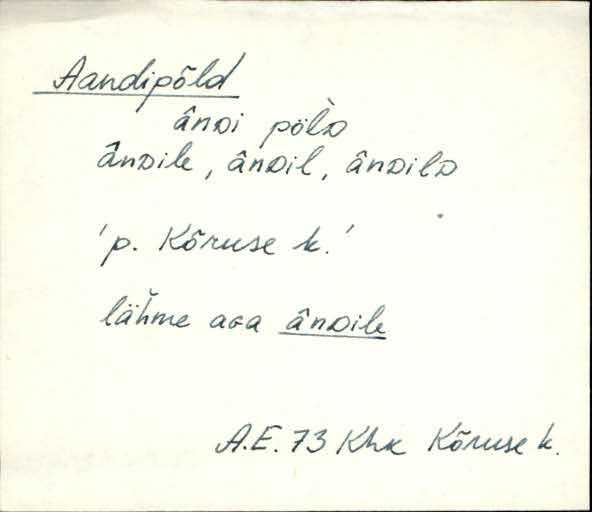 Aandipõld
ânᴅi pö̀lᴅ
ânᴅile, ânᴅil, ânᴅilᴅ
'p. Kõruse k.'
läȟme aɢa ânᴅile
A.E. 73 Khk Kõruse k.